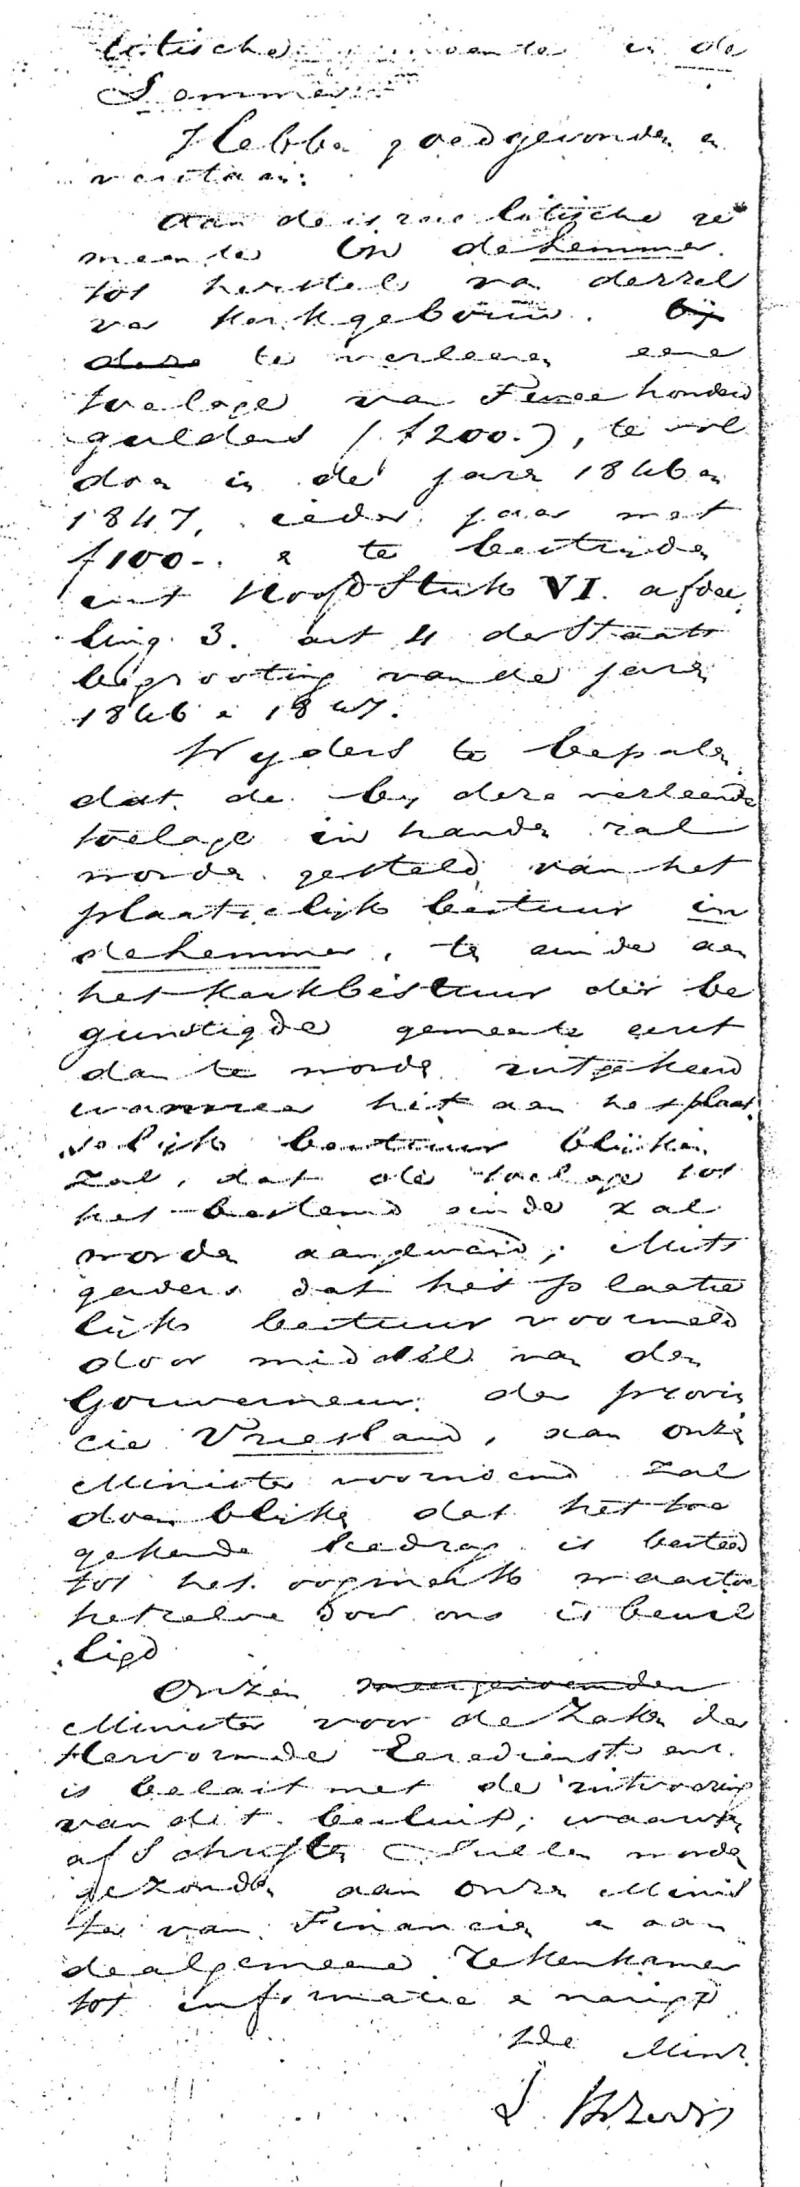 litische in de
Lemmer
Hebben goedgevonden en
verstaan:
Aan de israelitische ge
meente in de Lemmer
tot herstel van derzel
ver kerkgebouw. bij
deze te verleenen eene
toelage van Twee honderd
guldens (f200.-), te vol
doen in de jaren 1846 en
1847, ieder jaar met
f100-. en te bestrijden
uit Hoofdstuk VI. afdee
ling 3. art 4 der Staats
begrooting van de jaren
1846 en 1847.
Wijders te bepalen,
dat de bij deze verleende
toelage in handen zal
worden gesteld van het
plaatselijk bestuur in
de Lemmer, ten einde aan
het kerkbestuur der be
gunstigde gemeente eerst
dan te worden uitgekeerd
wanneer het aan het plaat
selijk bestuur blijken
zal, dat de toelage tot
het bestemd einde zal
worden aangewend; Mits
gaders dat het plaatse
lijk bestuur voormeld
door middel van den
Gouverneur der provin
cie Vriesland, aan onzen
Minister voornoemd zal
doen blijken dat het toe
gekende bedrag is besteed
tot het oogmerk waartoe
hetzelve door ons is bewil
ligd
Onzen meergenoemden
Minister voor de Zaken der
Hervormde Eeredienst enz.
is belast met de uitvoering
van dit besluit, waarvan
afschriften zullen worden
gezonden aan onzen Minis
ter van Financien en aan
de algemeene Rekenkamer
tot informatie en narigt
De Minr.